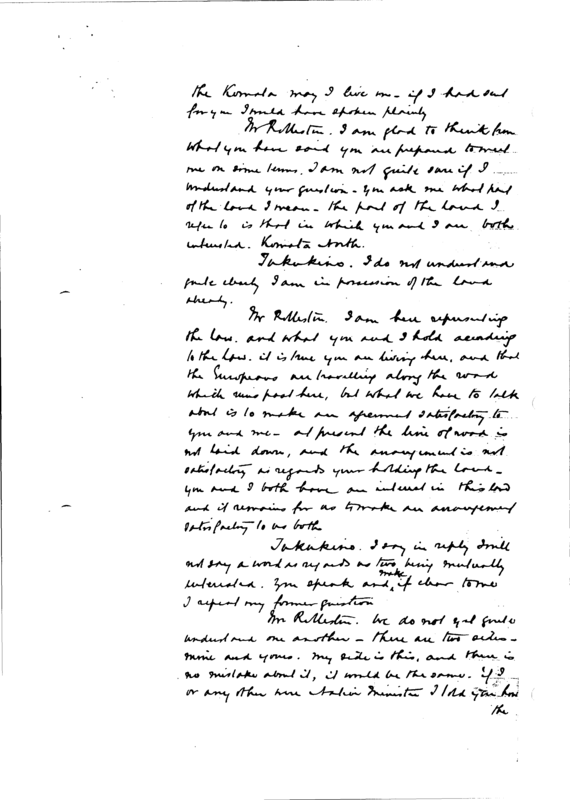 the Komata may I live in - if I had sent
for you I would have spoken plainly
Mr Rolleston. I am glad to think from
what you have said you are prepared to meet
me on some terms. I am not quite sure if I
understand your question - you ask me what part
of the land I mean - the part of the land I
refer to is that in which you and I are both
interested. Komata North.
Tukukino. I do not understand
quite clearly I am in possession of the land
already.
Mr Rolleston. I am here representing
the law. and what you and I hold according
to the law. it is true you are living here, and that
the Europeans are travelling along the road
which runs past here, but what we have to talk
about is to make an agreement satisfactory to
you and me - at present the line of road is
not laid down, and the arrangement is not
satisfactory as regards your holding the land -
you and I both have an interest in this land
and it remains for us to make an arrangement
satisfactory to us both
Tukukino. I say in reply I will
not say a word as regards us two being mutually
interested. You speak and make it clear to me
I repeat my former question
Mr Rolleston. We do not yet quite
understand one another - there are two sides -
mine and yours. My side is this, and there is
no mistake about it, it would be the same. if I
or any other were Native Minister I told you how
the